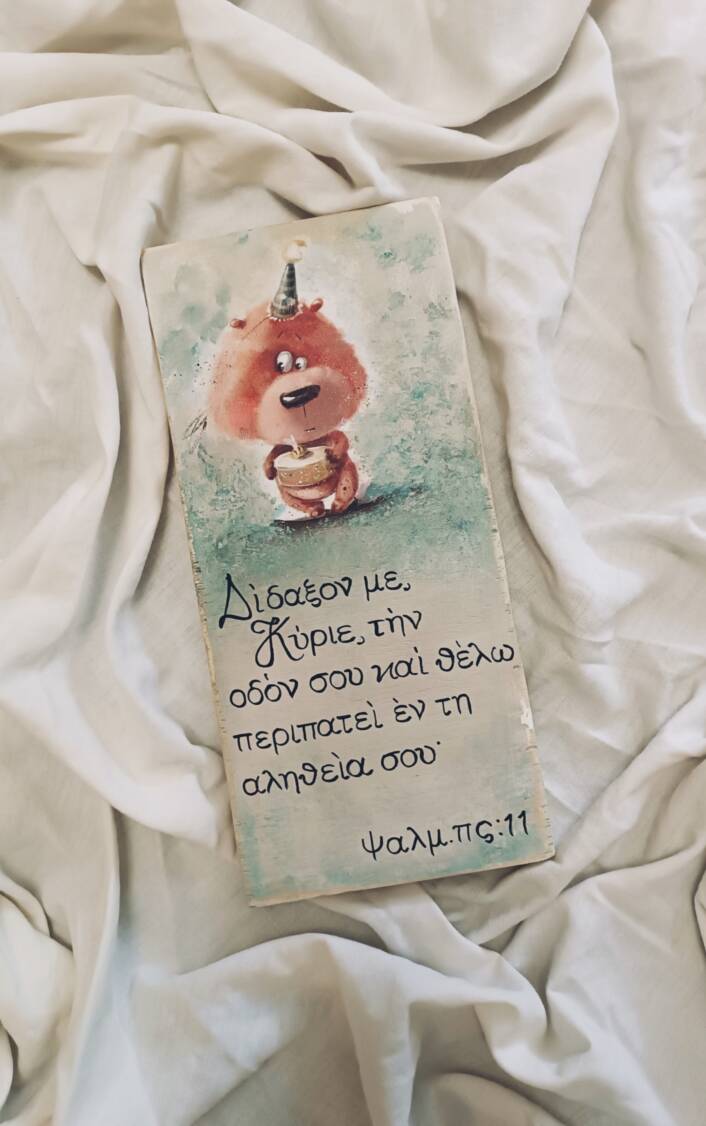 Δὶδαξον με,
Κὺριε, τὴν
οδὸν σου καὶ θὲλω
περιπατεὶ ὲν τη
αληθεὶα σου·
ψαλμ.πς:11